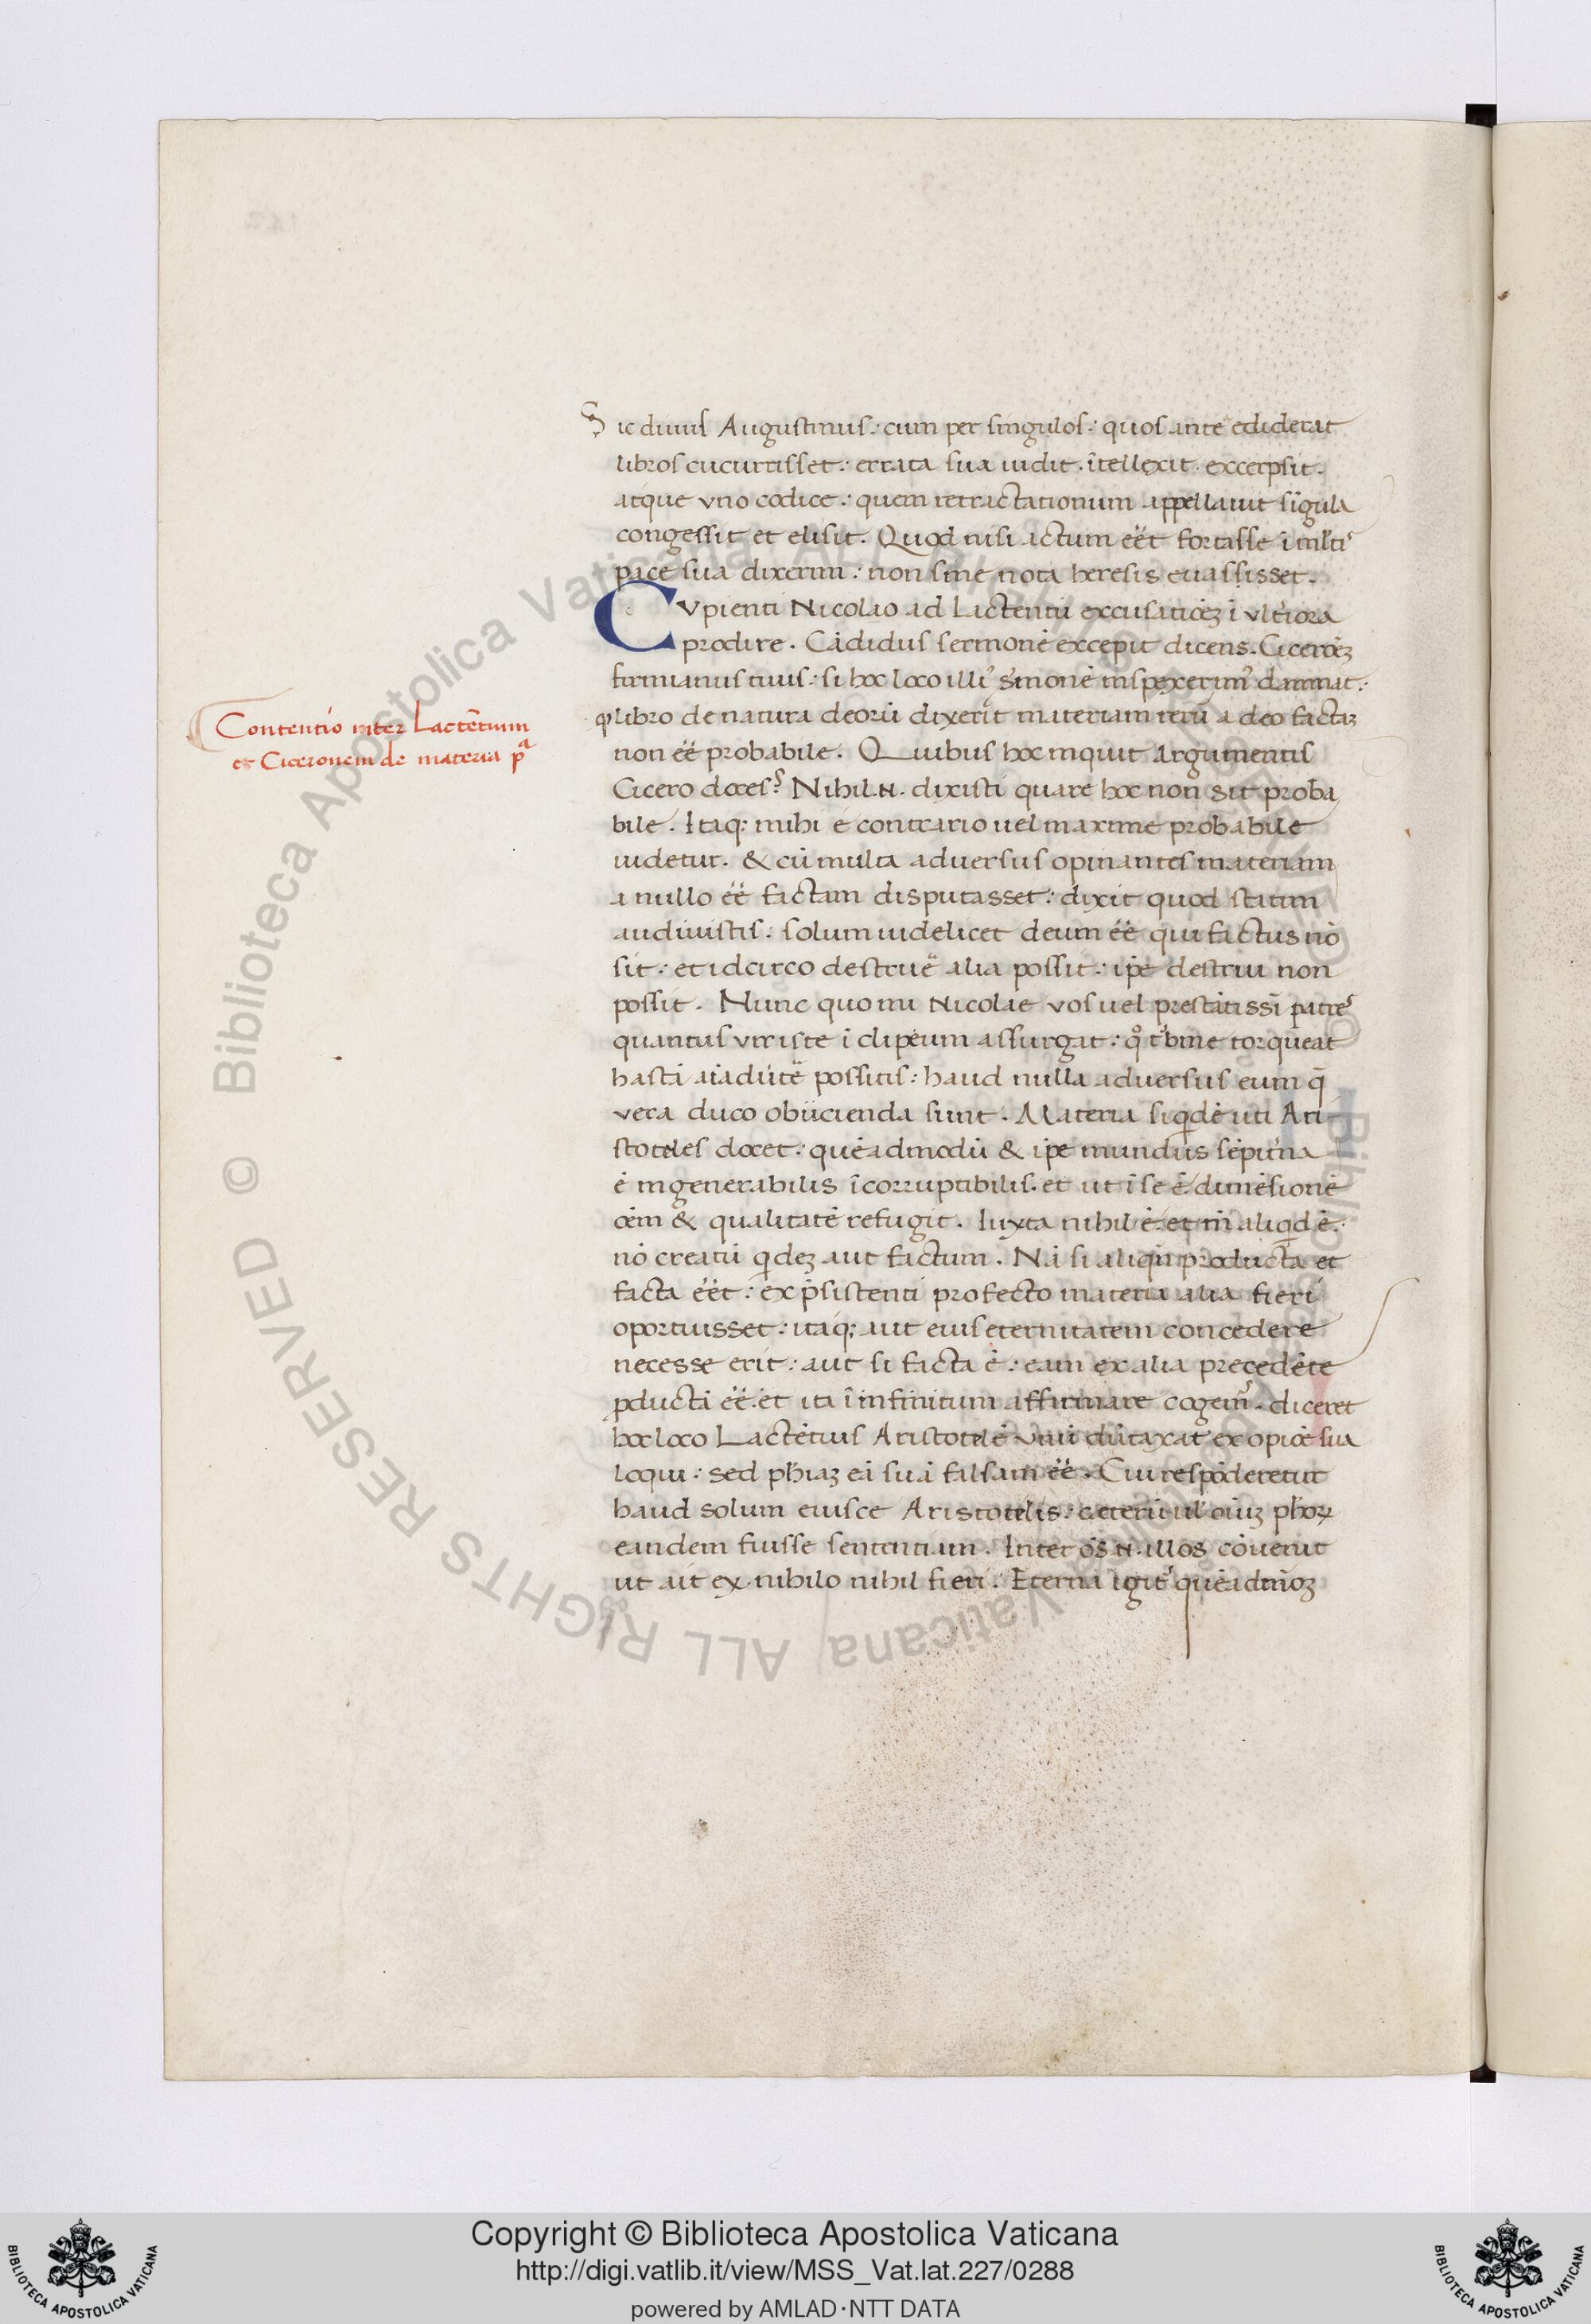 Sic diuus Augustinus: cum per singulos: quos ante ediderat
libros cucurrisset: errata sua uidit. ĩtellexit. excerpsit.
atque vno codice: quem retractationum appellauit sĩgula
congessit et elisit. Quod nisi actum eēt fortasse ĩ
pace sua dixerim: non sine nota heresis euassisset.
Cvpienti Nicolao ad Lactentiũ excusatiõeʒ ĩ vlt'iora
prodire. Cãdidus sermonẽ excepit dicens. Ciceroẽʒ
firmianus tuus: si hoc loco illiꝰ s'monẽ inspexerimꝰ damnat:
Contentio inter Lactẽtium
et Ciceronem de materia pᵃ
ꝙ libro de natura deorũ dixerit materiam rerũ a deo factaʒ
non eē probabile. Quibus hoc inquit argumentis
Cicero doces? Nihil .N. dixisti quare hoc non sit proba
bile. Itaqʒ mihi e contrario uel maxime probabile
uidetur. & cũ multa aduersus opinantes materiam
a nullo eē factam disputasset: dixit quod statim
audiuistis: solum uidelicet deum eē qui factus nõ
sit: et idcirco destruẽ alia possit: ipẽ destrui non
possit. Nunc quo mi Nicolae vos uel prestãtissĩ patres
quantus vir iste ĩ clipeum assurgat: torqueat
hastã possitis: haud nulla aduersus eum q̃
vera duco obiicienda sunt. Materia siqͥdẽ uti Ari-
stoteles docet: quẽadmodũ & ipẽ mundus sẽpit'na
ẽ ingenerabilis ĩcorruptibilis. et ut ĩ se ẽ. dimẽsionẽ
oẽm & qualitatẽ refugit. Iuxta nihil ẽ. et tñ aliqͥd ẽ:
nõ creatũ qͥdeʒ aut factum. Nã si aliqñ producta et
facta eēt: ex p̃sistenti profecto materia alia fieri
oportuisset: itaqʒ aut eius eternitatem concedere
necesse erit: aut si facta ẽ: eam ex alia precedẽte
ꝓductã eē. et ita ĩ infinitum affirmare cogemꝰ. diceret
hoc loco Lactẽtius Aristotelẽ vnũ dũtaxat ex opiõe sua
loqui: sed ph̃iaʒ eã suã falsam eē. Cui respõderetur
haud solum eiusce Aristotelis: ceterũ ul' oĩuʒ ph̃oꝝ
eandem fuisse sententiam. Inter õs .N. illos cõuenit
ut ait ex nihilo nihil fieri. Eterna igit' quẽadmoʒ
Copyright © Biblioteca Apostolica Vaticana
http://digi.vatlib.it/view/MSS_Vat.lat.227/0288
powered by AMLAD·NTT DATA
BIBLIOTECA APOSTOLICA VATICANA
BIBLIOTECA APOSTOLICA VATICANA
© Biblioteca Apostolica Vaticana ALL RIGHTS RESERVED